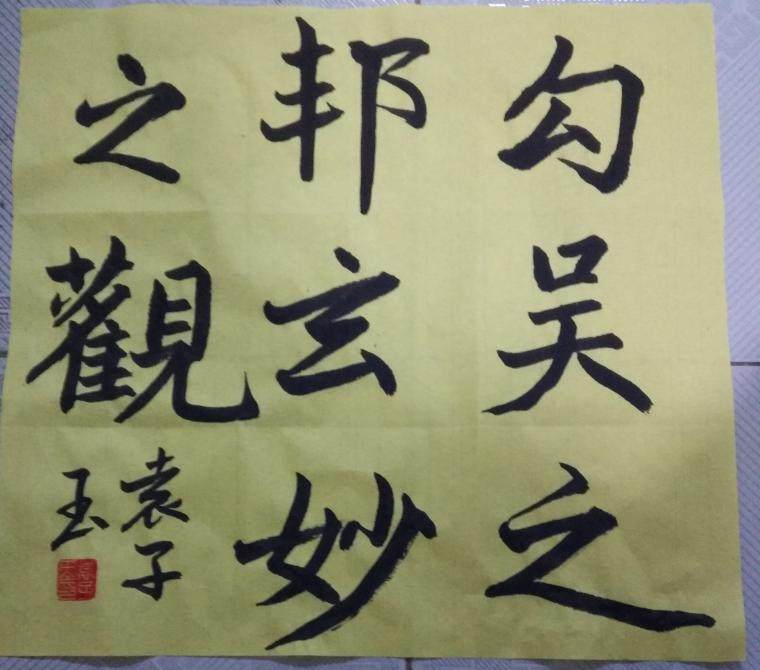 勾吴之
邦玄妙
之觀
袁子
玉